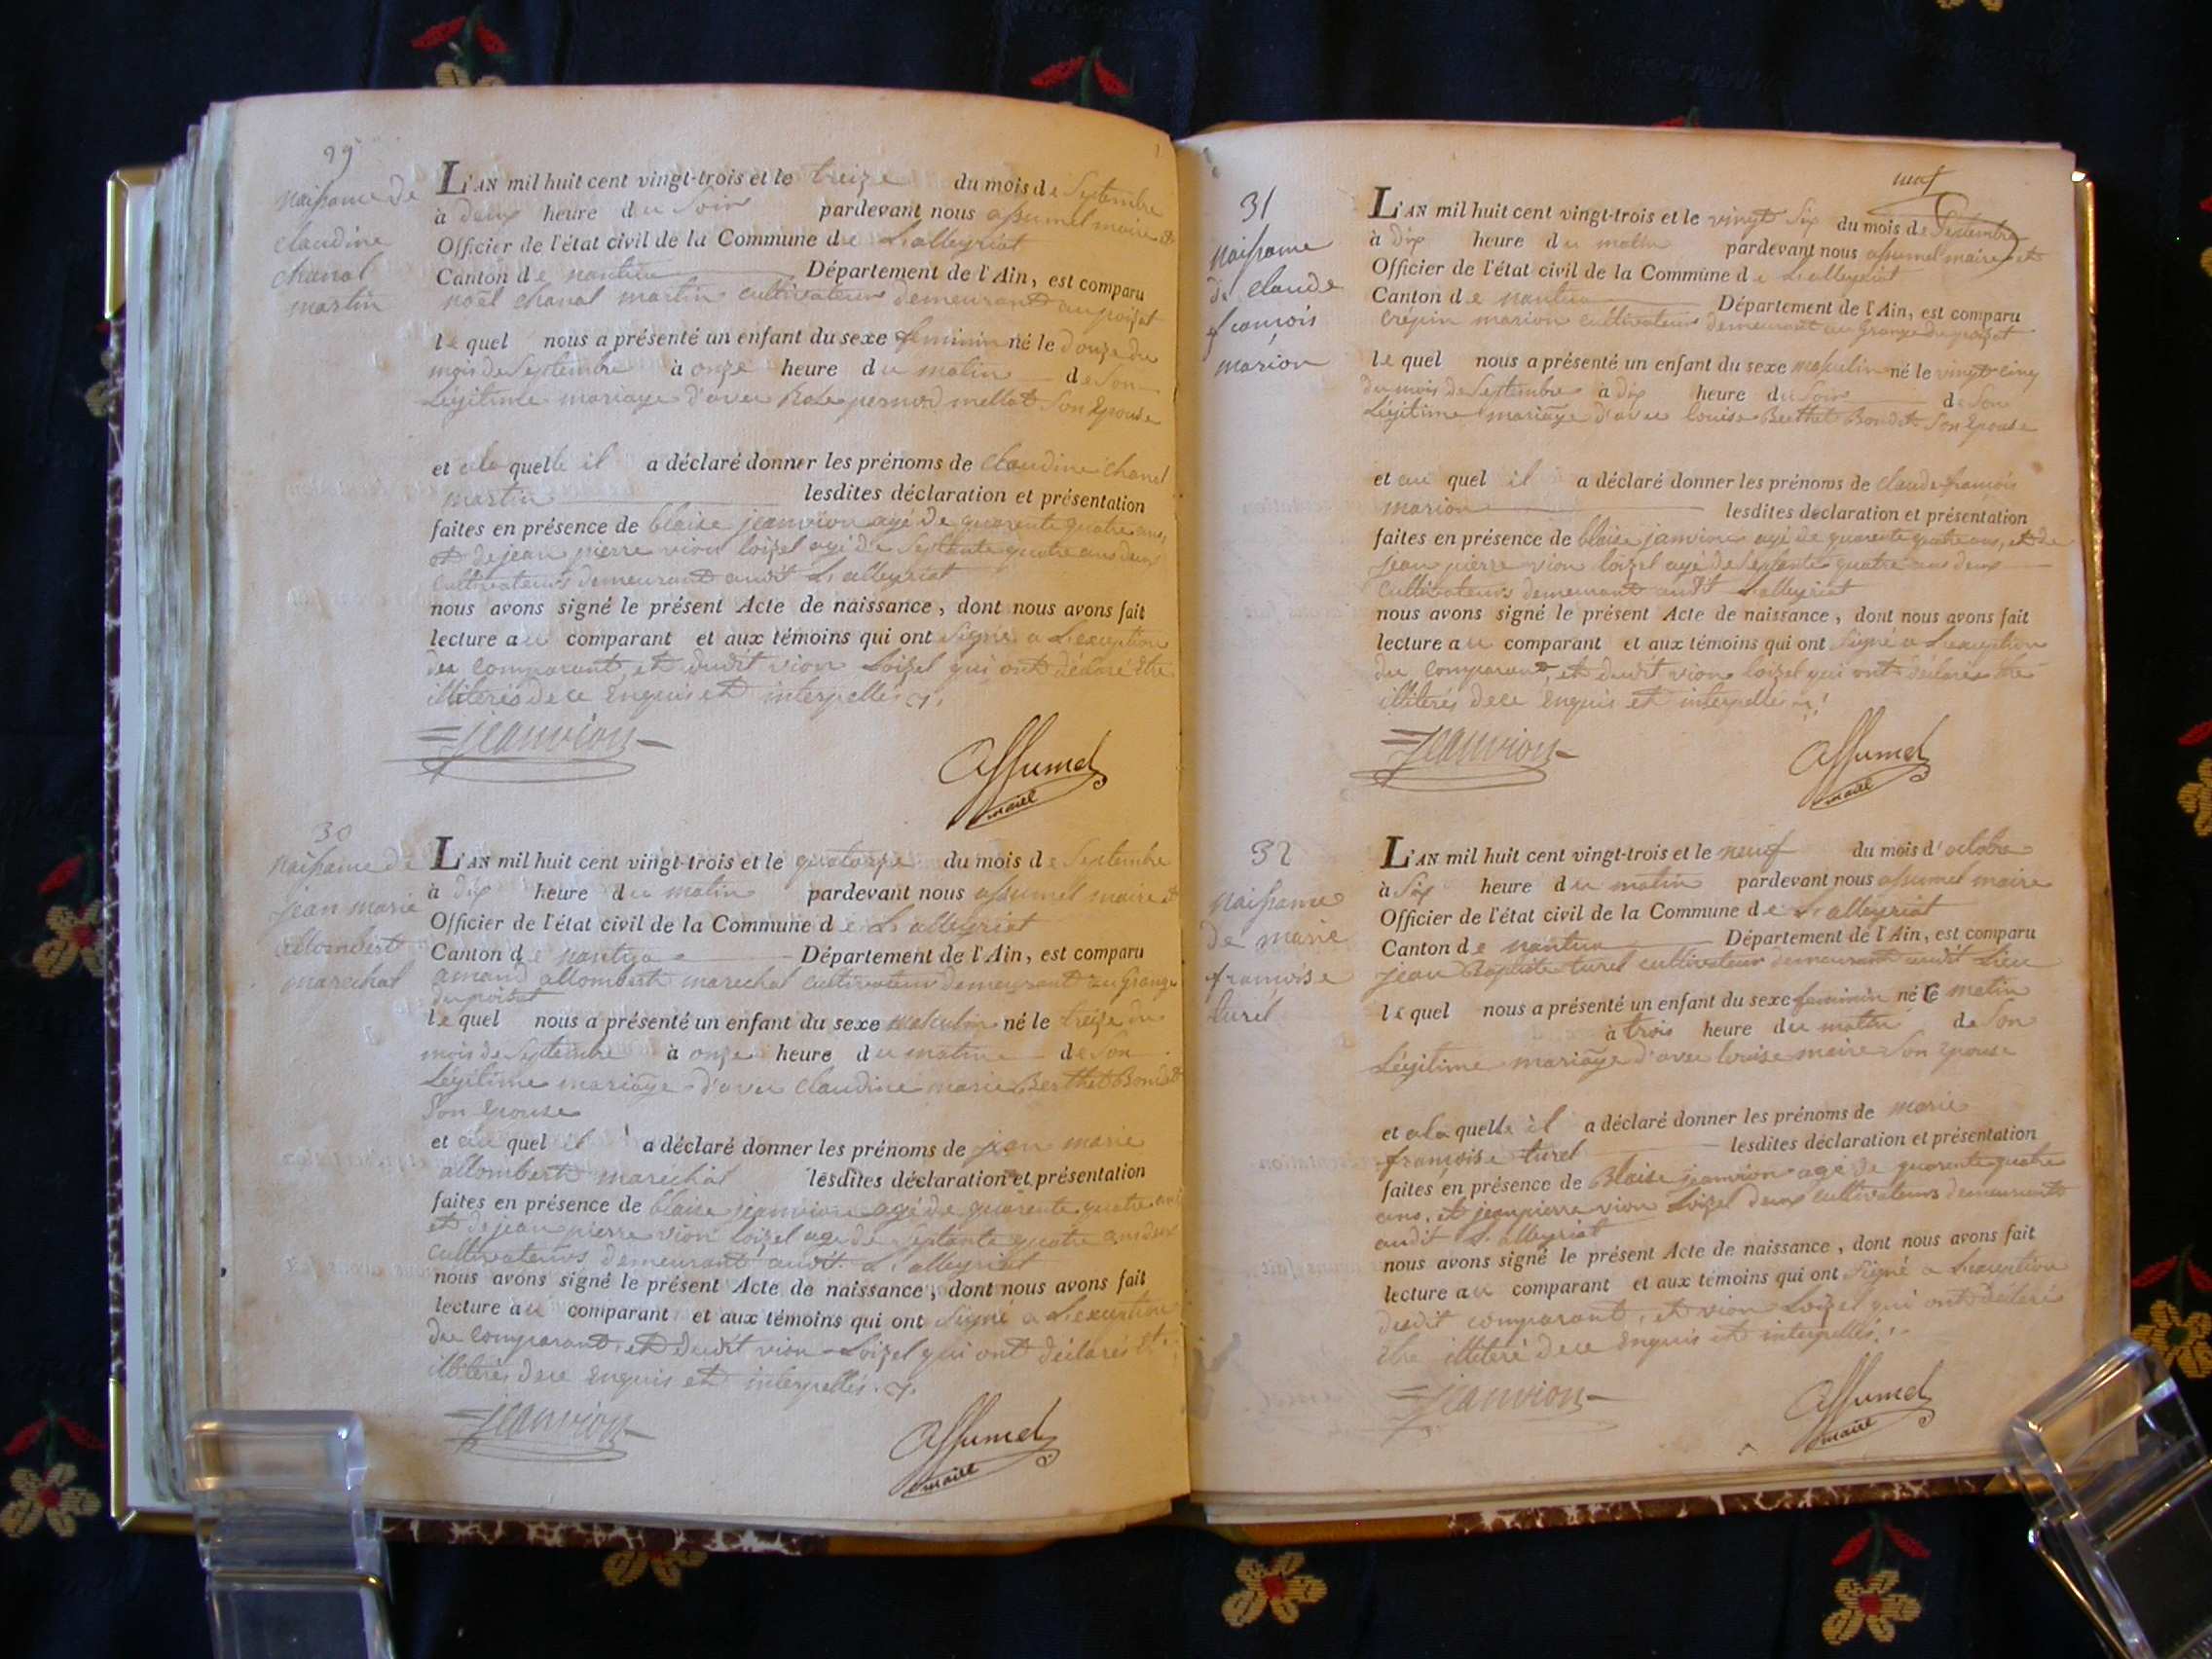 29
naissance de
claudine
chanal
martin
L'AN mil huit cent vingt-trois et le treize du mois de Septembre
à deux heure du Soir pardevant nous assumel maire et
Officier de l'état civil de la Commune de L'alleyriat
Canton de nantua Département de l'Ain, est comparu
noël chanal martin cultivateur demeurant au poizat
le quel nous a présenté un enfant du sexe feminin né le douze du
mois de Septembre à onze heure du matin de Son
Légitime mariage d'avec Rose pernod mellat Son Epouse
et a la quelle il a déclaré donner les prénoms de Claudine chanal
martin lesdites déclaration et présentation
faites en présence de blaise jeanvion agé de quarente quatre ans,
et de jean pierre vion loizel agé de Septante quatre ans deux
Cultivateurs demeurant audit L'alleyriat
nous avons signé le présent Acte de naissance, dont nous avons fait
lecture au comparant et aux témoins qui ont Signé a L'exception
du comparant, et dudit vion Loizel qui ont déclaré Etre
illiterés de ce Enquis et interpellés
jeanvion
Assumel
maire
30
naissance de
jean marie
allombert
marechal
L'AN mil huit cent vingt-trois et le quatorze du mois de Septembre
à dix heure du matin pardevant nous assumel maire et
Officier de l'état civil de la Commune de L'alleyriat
Canton de nantua Département de l'Ain, est comparu
amand allombert marechal cultivateur demeurant au Grange
du poizat
le quel nous a présenté un enfant du sexe masculin né le treize du
mois de Septembre à onze heure du matin de Son
Légitime mariage d'avec Claudine marie Berthet Bondet
Son Epouse
et au quel il a déclaré donner les prénoms de jean marie
allombert maréchal lesdites déclaration et présentation
faites en présence de blaise jeanvion agé de quarente quatre ans
et de jean pierre vion loizel age de Septante quatre ans deux
cultivateurs demeurant audit L'alleyriat
nous avons signé le présent Acte de naissance, dont nous avons fait
lecture au comparant et aux témoins qui ont Signé a L'exception
du comparant, et dudit vion Loizel qui ont déclarés
illiterés de ce Enquis et interpellés
jeanvion
Assumel
maire
neuf
31
naissance
de claude
françois
marion
L'AN mil huit cent vingt-trois et le vingt Six du mois de Septembre
à dix heure du matin pardevant nous assumel maire et
Officier de l'état civil de la Commune de L'alleyriat
Canton de nantua Département de l'Ain, est comparu
Crépin marion cultivateur demeurant au Grange du poizat
le quel nous a présenté un enfant du sexe masculin né le vingt cinq
du mois de Septembre à dix heure du Soir de Son
Légitime mariage d'avec louise Berthet Bondet Son Epouse
et au quel il a déclaré donner les prénoms de claude françois
marion lesdites déclaration et présentation
faites en présence de blaise janvion agé de quarente quatre ans, et de
jean pierre vion loizel agé de Septante quatre ans deux
Cultivateurs demeurant audit L'alleyriat
nous avons signé le présent Acte de naissance, dont nous avons fait
lecture au comparant et aux témoins qui ont Signé a L'exception
du comparant, et dudit vion loizel qui ont déclarés être
illiterés de ce Enquis et interpellés
jeanvion
Assumel
maire
32
naissance
de marie
françoise
turel
L'AN mil huit cent vingt-trois et le neuf du mois d'octobre
à Six heure du matin pardevant nous assumel maire
Officier de l'état civil de la Commune de L'alleyriat
Canton de nantua Département de l'Ain, est comparu
jean Baptiste turel cultivateur demeurant audit Lieu
le quel nous a présenté un enfant du sexe feminin né le matin
à trois heure du matin de Son
Légitime mariage d'avec louise maire Son Epouse
et a la quelle il a déclaré donner les prénoms de marie
françoise turel lesdites déclaration et présentation
faites en présence de Blaise jeanvion agé de quarente quatre
ans, et jean pierre vion Loizel deux cultivateurs demeurant
audit L'alleyriat
nous avons signé le présent Acte de naissance, dont nous avons fait
lecture au comparant et aux témoins qui ont Signé a L'exception
dudit comparant, et vion Loizel qui ont déclaré
Etre illiteré de ce Enquis et interpellés
jeanvion
Assumel
maire